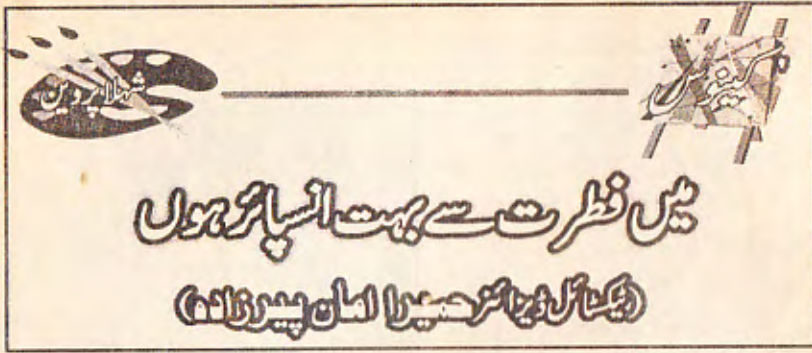 کینوس
شہلا پروین
میں فطرت سے بہت انسپائر ہوں
(ٹیکسٹائل ڈیزائنر حمیرا امان پیرزادہ)